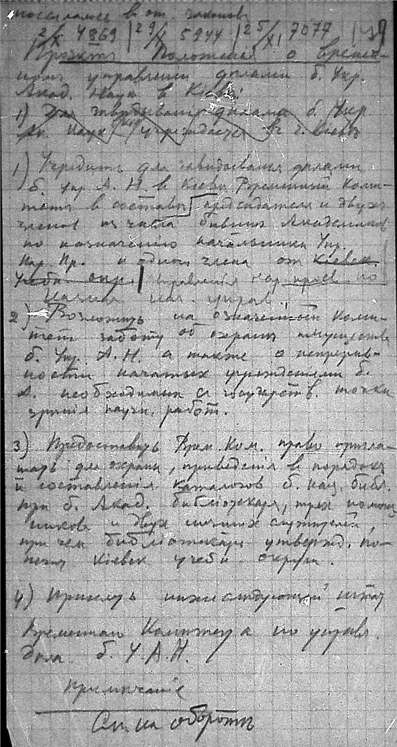 посылалось в от. законов
2/X 4869 | 29/X 5944 | 25/XI 7077
Проектъ Положенія о времен-
номъ управленіи дѣлами б. Укр.
Акад. Наукъ в Кіевѣ
1) Для завѣдыванія дѣлами б. Укр
Ак. Наук учреждается в г. Кіевѣ
1) Учредить для завѣдыванія дѣлами
б. Укр А. Н. в Кіевѣ Временный Коми-
тетъ в составѣ предсѣдателя и двухъ
членов из числа бывших Академиков
по назначенію начальника Упр.
Нар. Пр. и одного члена от Кіевск
Учебн. окр. управленія нар. просв. по
назнач. нач. управ.
2) Возложить на означенный Коми-
тет заботу об охранѣ имущества
б. Укр. А. Н. а также о непрерыв-
ности начатых учрежденіями б.
А. необходимых с государств. точки
зрѣнія научн. работ.
3) Предоставить Врем. Ком. право пригла-
шать для охраны, приведенія в порядок
и составленія каталогов б. нац. библ.
при б. Акад. библіотекаря, трех помощ
никовъ и двух служителей,
при чем библіотекарь утвержд. по-
печ. Кіевск учебн. округа.
4) Принять нижеслѣдующій штат
Временнаго Комитета по управл.
дѣла б. У. А. Н.
Примѣчаніе
См. на оборотѣ